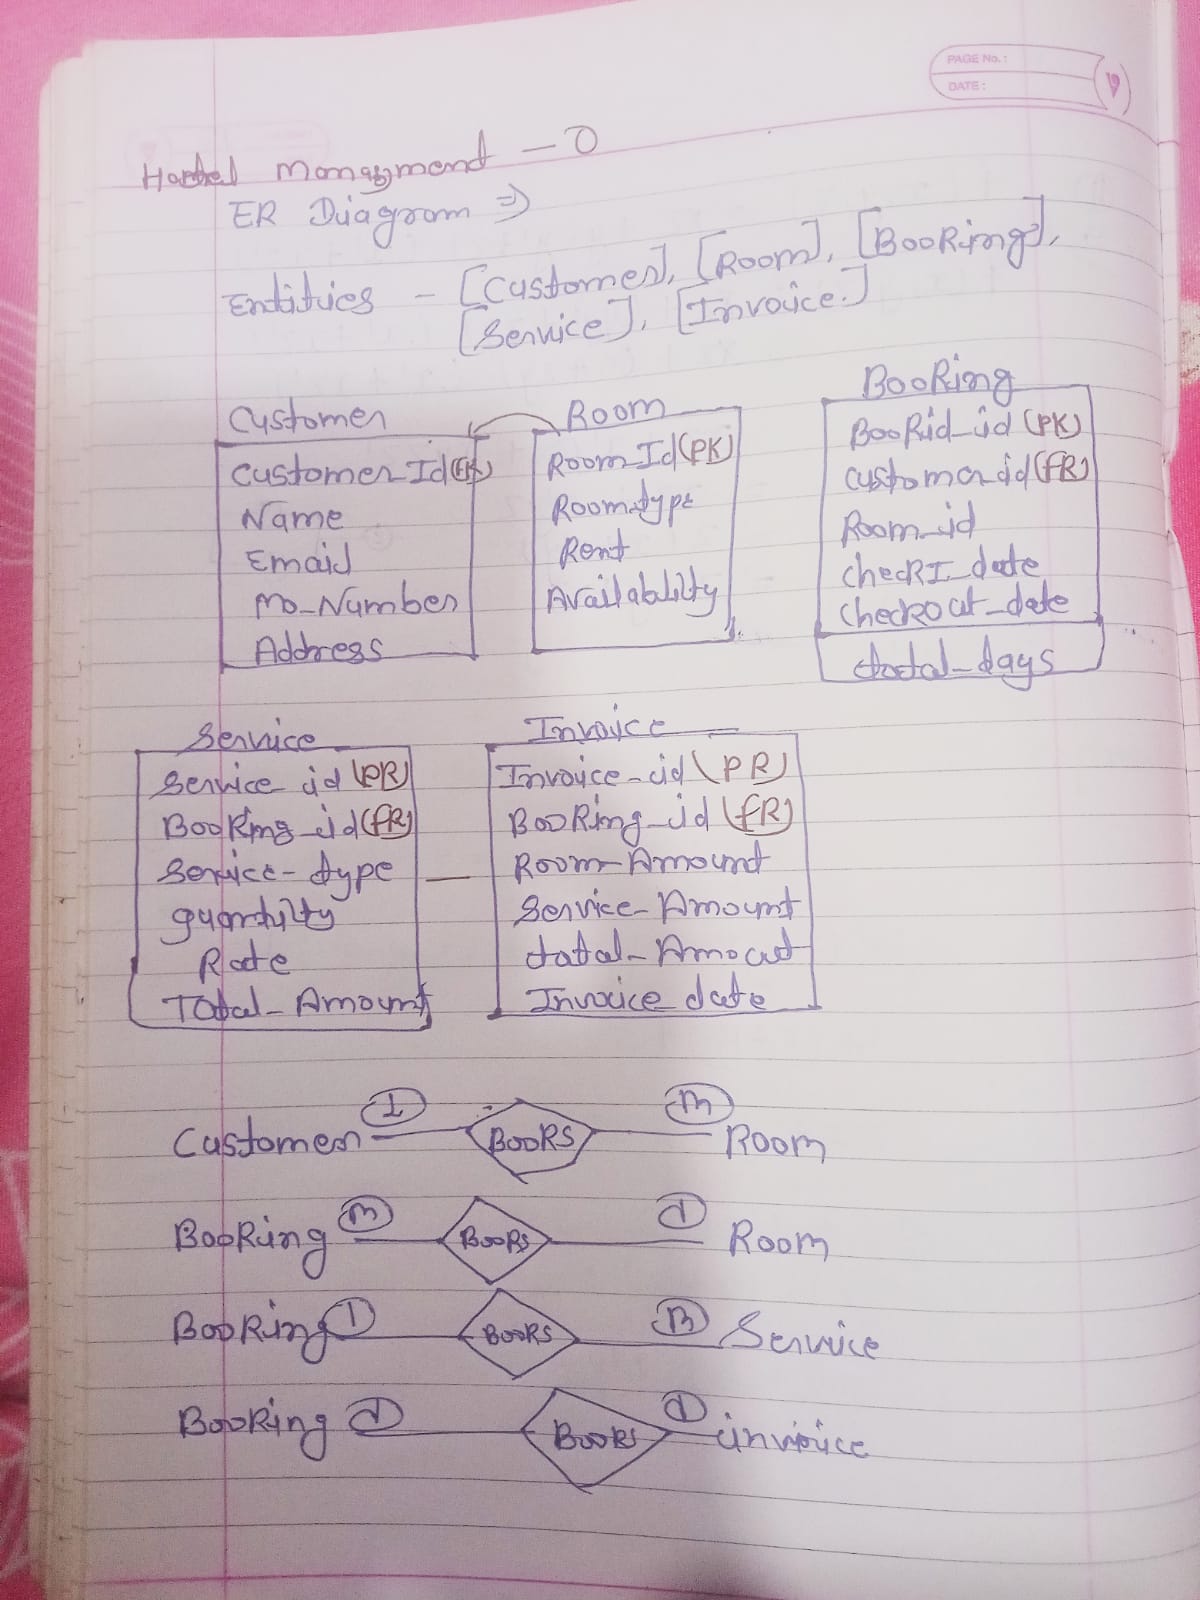 PAGE No.:
DATE:
Hotel Managmend - O
ER Diagram ⇒
Entities - [Customer], [Room], [Booking],
[Service], [Invoice.]
Customer
Customer_Id
Name
Email
Mo_Number
Address
Room
Room_Id (PK)
Room_type
Rent
Availability
Booking
Bookid_id (PK)
Customer id (FK)
Room_id
CheckI_date
Checkout_date
total_days
Service
Service_id (PK)
Booking_id (FK)
Service-type
quantity
Rate
Total_Amount
Invoice
Invoice_id (PK)
Booking_id (FK)
Room-Amount
Service-Amount
total-Amout
Invoice_date
Customer 1 Books m Room
Booking m Books 1 Room
Booking 1 Books m Service
Booking 1 Books 1 invoice